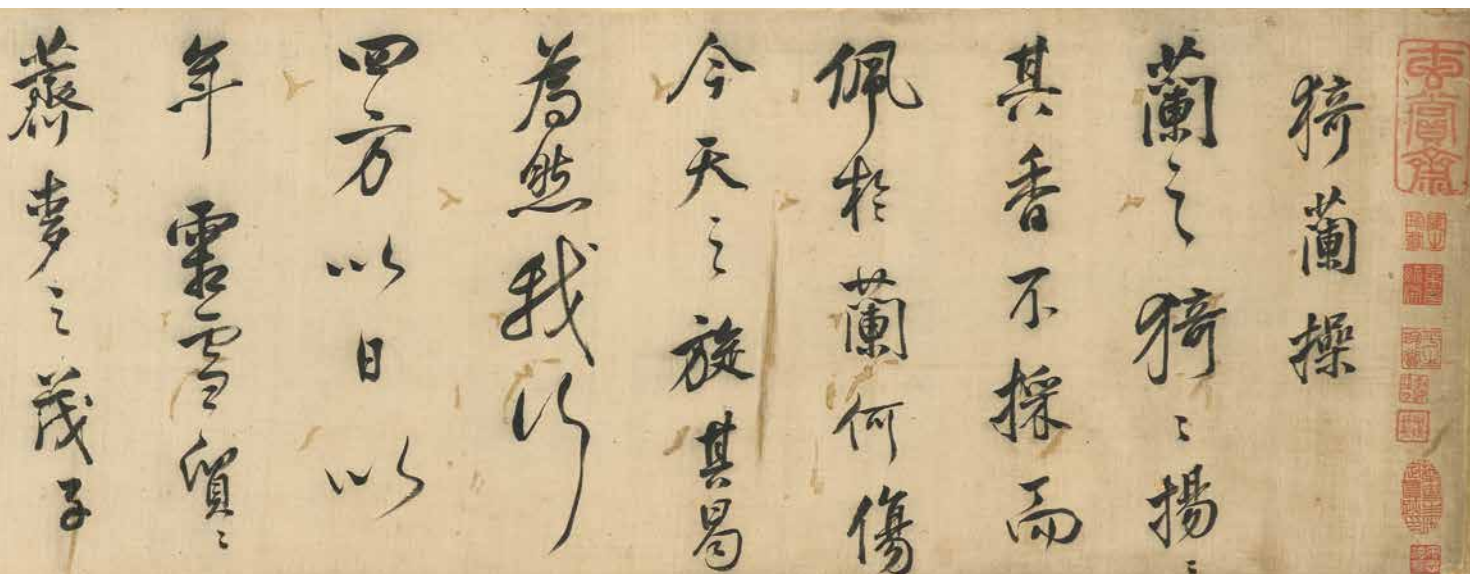 玄賞齋
猗蘭操
蘭之猗〻揚〻
其香不採而
佩於蘭何傷
今天之旋其曷
為然我行
四方以日以
年霜雪貿〻
薺麥之茂子